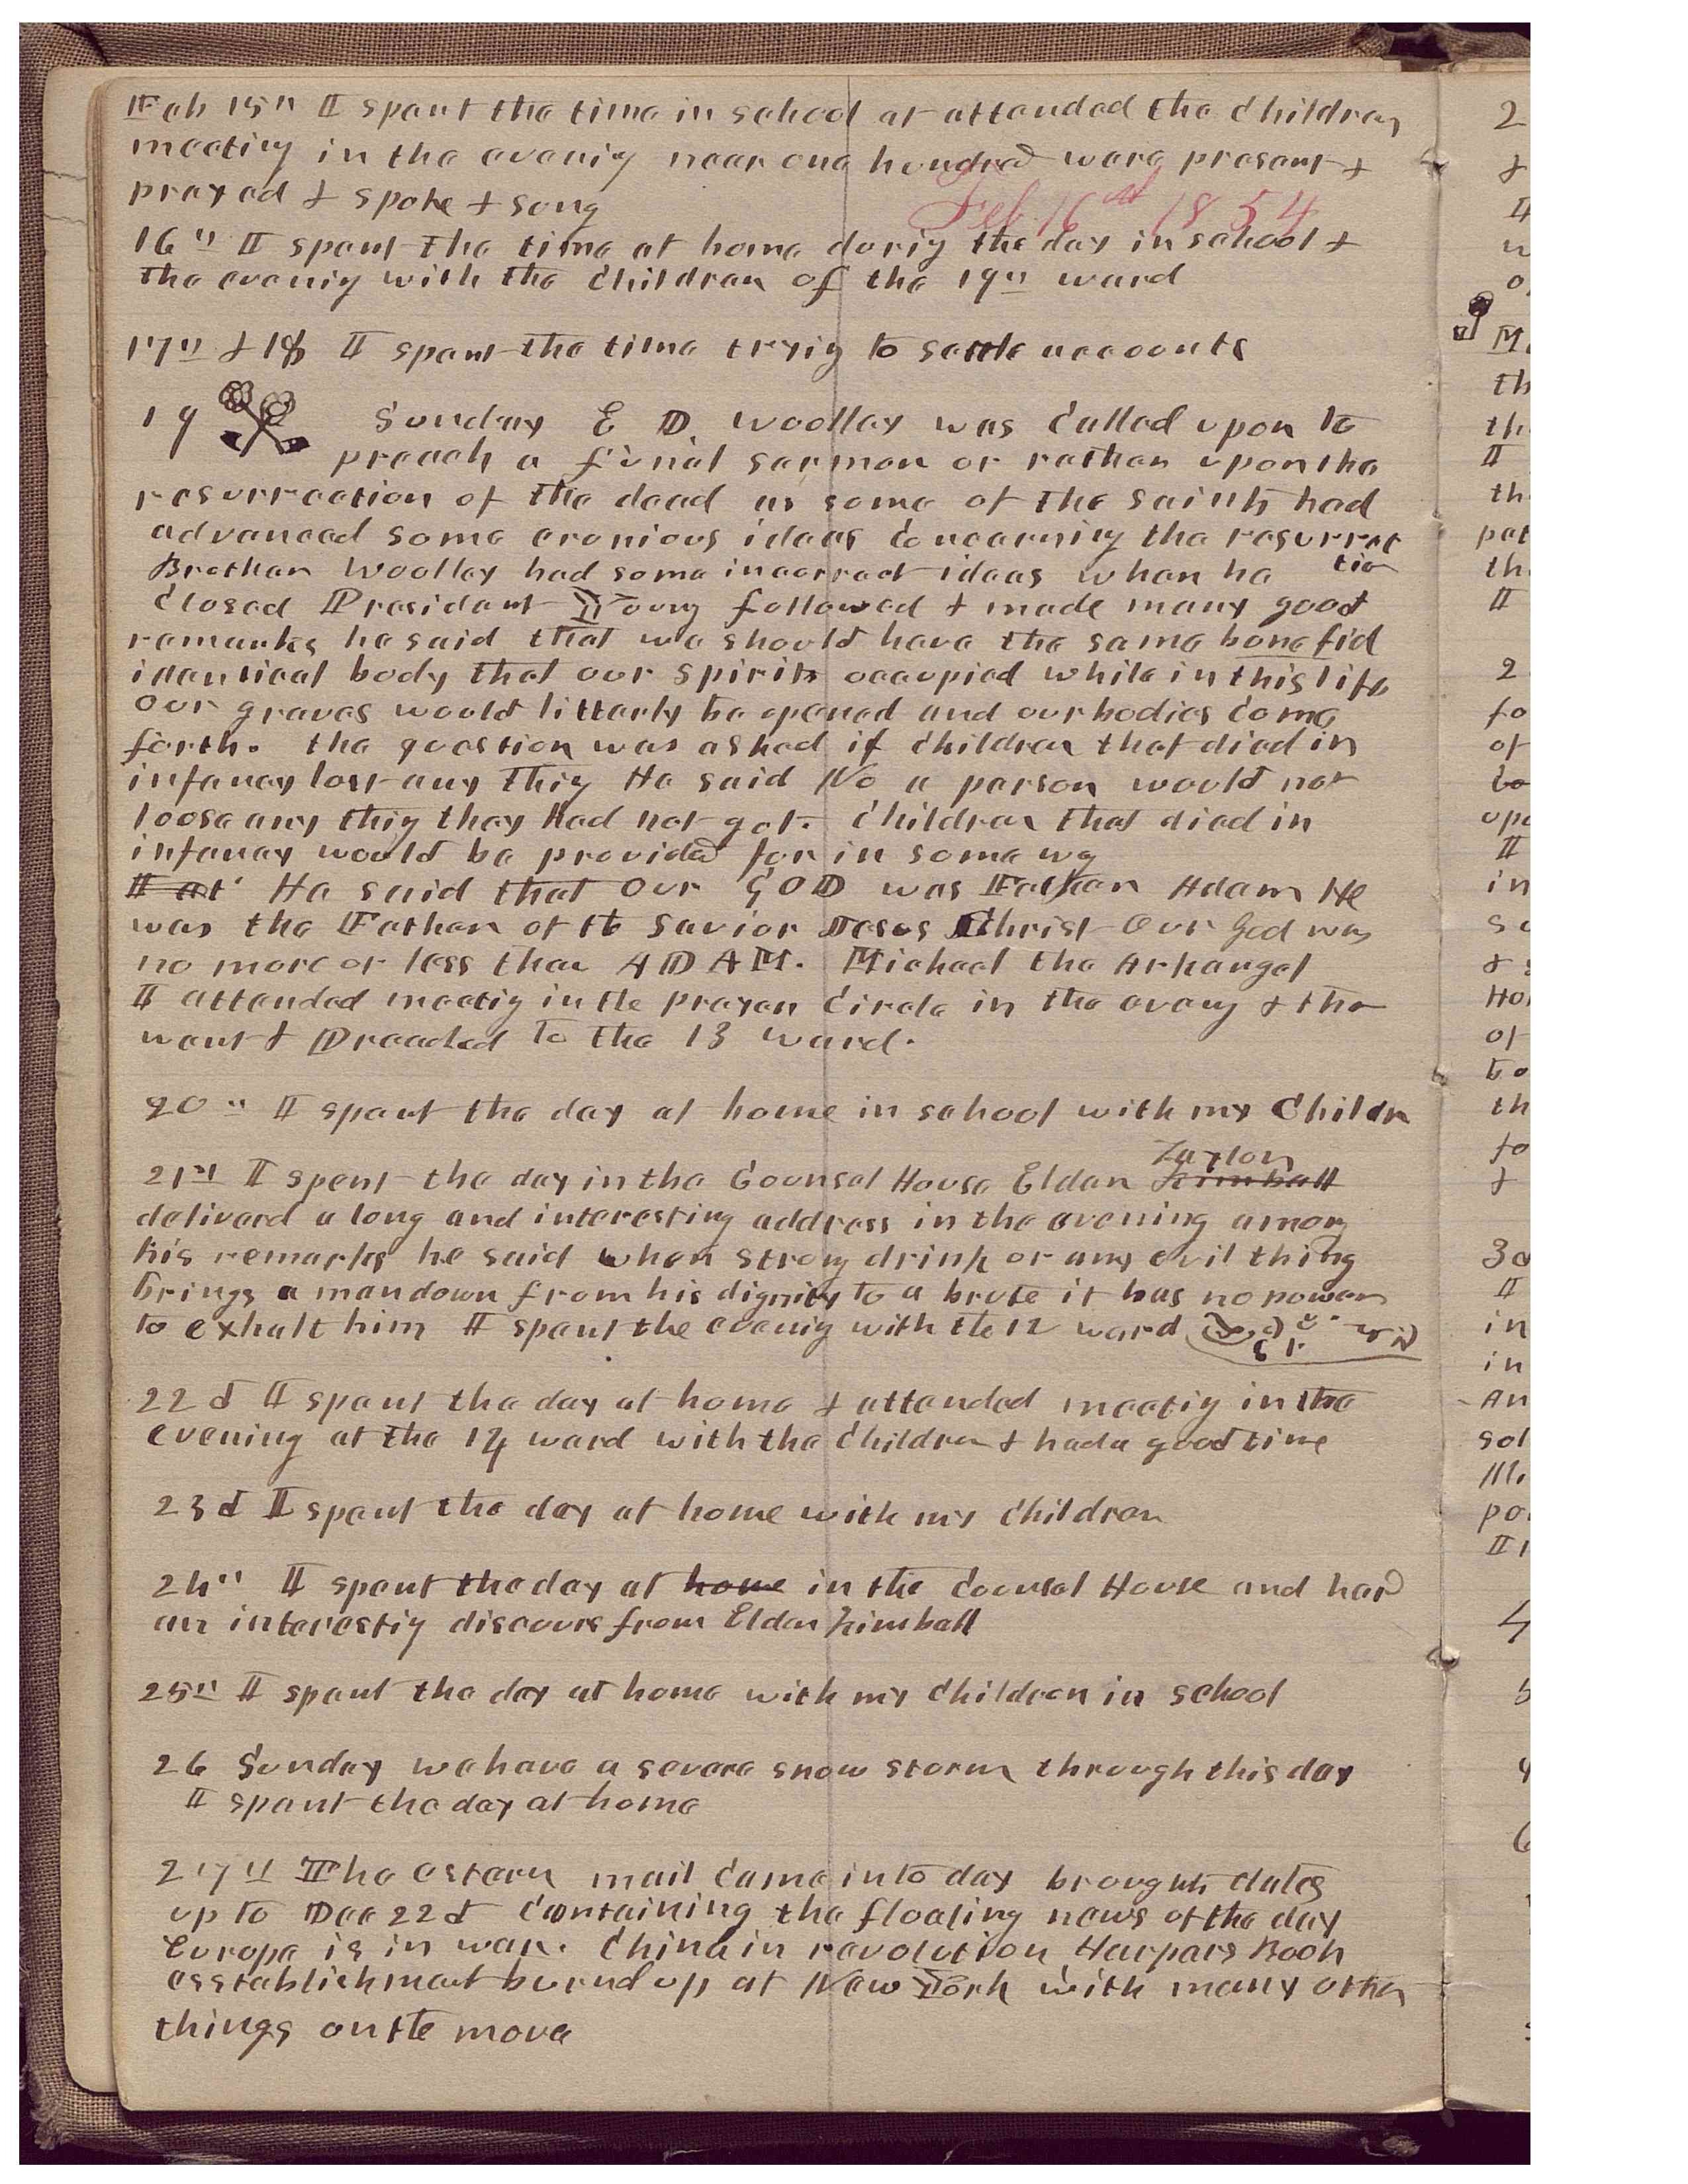 Feb 15th I spent the time in school at attended the children
meeting in the evenig near one hundred were present &
prayed & spoke & sung
Feb 16th 1854
16th I spent the time at home durig the day in school &
the evenig with the Children of the 19th ward
17th & 18 I spent the time tryig to settle accounts
19 Sunday E D. Woolley was Called upon to
preach a funal sermon or rather upon the
resurrection of the dead as some of the saints had
advanced some eronious ideas Concerning the resurrec
tion
Brother Woolley had some incorrect ideas when he
Closed President Young followed & made many good
remarks he said that we should have the same bonefid
identical body that our spirits occupied while in this life
Our graves would litterly be opened and our bodies Come
forth. the question was asked if Children that died in
infancy lost any thig He said No a person would not
loose any thig they had not got. Children that died in
infancy would be provided for in some wy
I at He said that Our GOD was Father Adam He
was the Father of the Savior Jesus Christ Our God was
no more or less than ADAM. Michael the Arkangel
I attended meetig in the prayer Circle in the eveng & the
went & Preached to the 13 ward.
20th I spent the day at home in school with my Childn
Taylor
21st I spent the day in the Counsel House Elder Kimball
deliverd a long and interesting address in the evening among
his remarks he said when strong drink or any evil thing
brings a man down from his dignity to a brute it has no power
to exhalt him I spent the evenig with the 12 ward
22d I spent the day at home & attended meetig in the
evening at the 14 ward with the Children & had a good time
23d I spent the day at home with my Children
24th I spent the day at home in the Counsel House and had
an interestig discours from Elder Kimball
25th I spent the day at home with my Children in school
26 Sunday we have a severe snow storm through this day
I spent the day at home
27th The estern mail Came in to day brought dates
up to Dec 22d Containing the floating news of the day
Europe is in war. China in revolution Harpers Book
esstablishment burnd up at New York with many other
things on the move